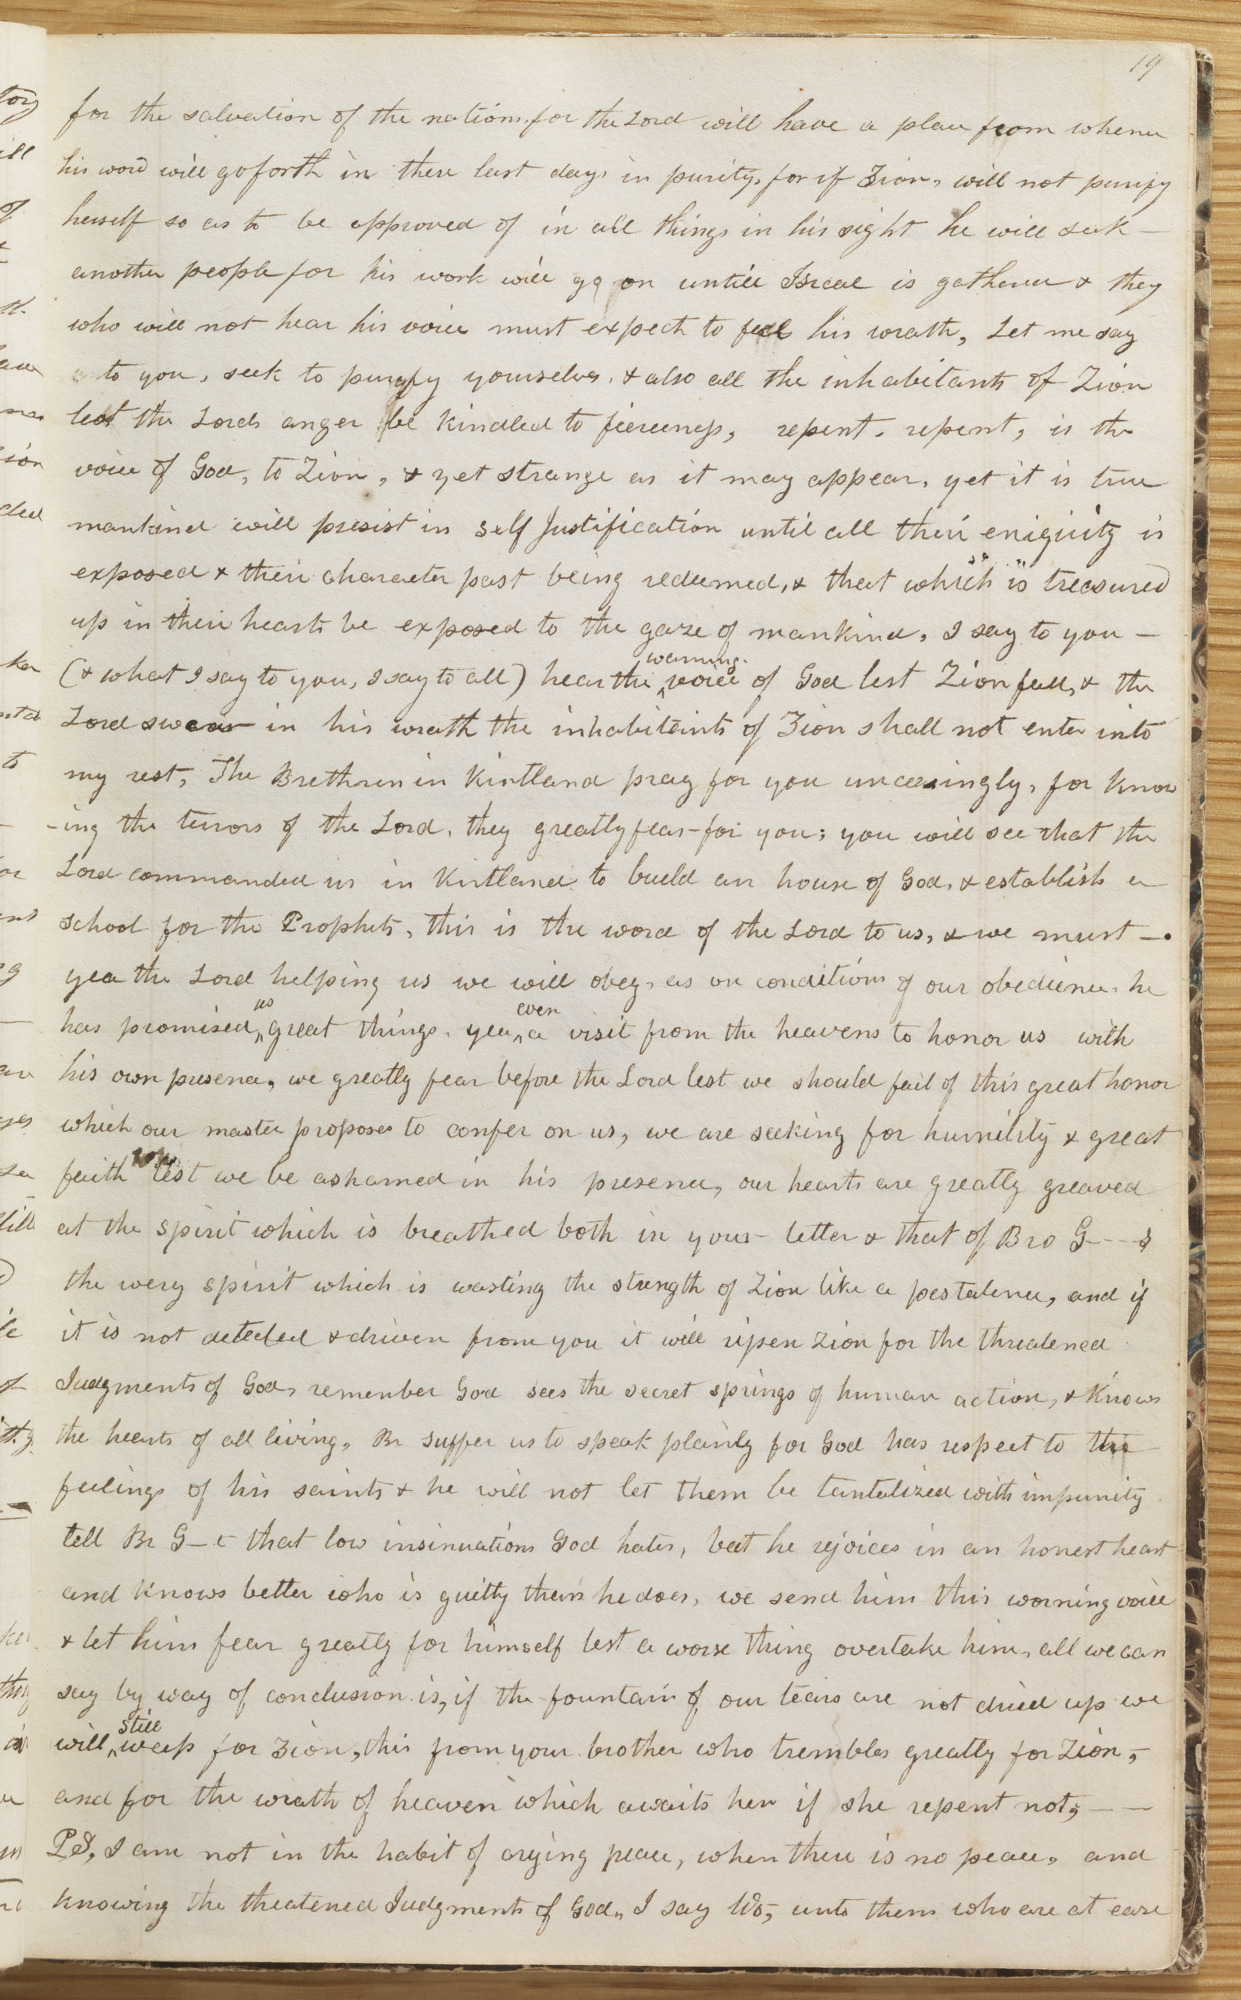 19
for the salvation of the nations. for the Lord will have a place from whence
his word will go forth in these last days in purity, for if Zion, will not purify
herself so as to be approved of in all things in his sight he will seek —
another people for his work will go on untill Israel is gathered & they
who will not hear his voice must expect to feel his wrath, Let me say
to you, seek to purify yourselves, & also all the inhabitants of Zion
lest the Lords anger be kindled to fierceness, repent, repent, is the
voice of God, to Zion, & yet strange as it may appear, yet it is true
mankind will presist in self Justification until all their eniquity is
exposed & their character past being redeemed, & that which is treasured
up in their hearts be exposed to the gaze of mankind, I say to you —
(& what I say to you, I say to all) hear the warning voice of God lest Zion fall, & the
Lord swear in his wrath the inhabitants of Zion shall not enter into
my rest, The Brethren in Kirtland pray for you unceasingly, for know
-ing the terrors of the Lord, they greatly fear for you; you will see that the
Lord commanded us in Kirtland to build an house of God, & establish a
school for the Prophets, this is the word of the Lord to us, & we must —
yea the Lord helping us we will obey, as on conditions of our obedience, he
has promised us great things, yea even a visit from the heavens to honor us with
his own presence, we greatly fear before the Lord lest we should fail of this great honor
which our master proposes to confer on us, we are seeking for humility & great
faith lest we be ashamed in his presence, our hearts are greatly greaved
at the spirit which is breathed both in your letter & that of Bro G---s
the wery spirit which is wasting the strength of Zion like a pestalence, and if
it is not detected & driven from you it will ripen Zion for the threatened
Judgments of God, remember God sees the secret springs of human action, & knows
the hearts of all living, Br suffer us to speak plainly for God has respect to the
feelings of his saints & he will not let them be tantalized with impunity
tell Br G—t that low insinuations God hates, but he rejoices in an honest heart
and knows better who is guilty than he does, we send him this worning voice
& let him fear greatly for himself lest a worse thing overtake him, all we can
say by way of conclusion is, if the fountain of our tears are not dried up we
will still weep for Zion, this from your brother who trembles greatly for Zion, —
and for the wrath of heaven which awaits her if she repent not, — —
P.S, I am not in the habit of crying peace, when there is no peace, and
knowing the theatened Judgments of God, I say Wo, unto them who are at ease